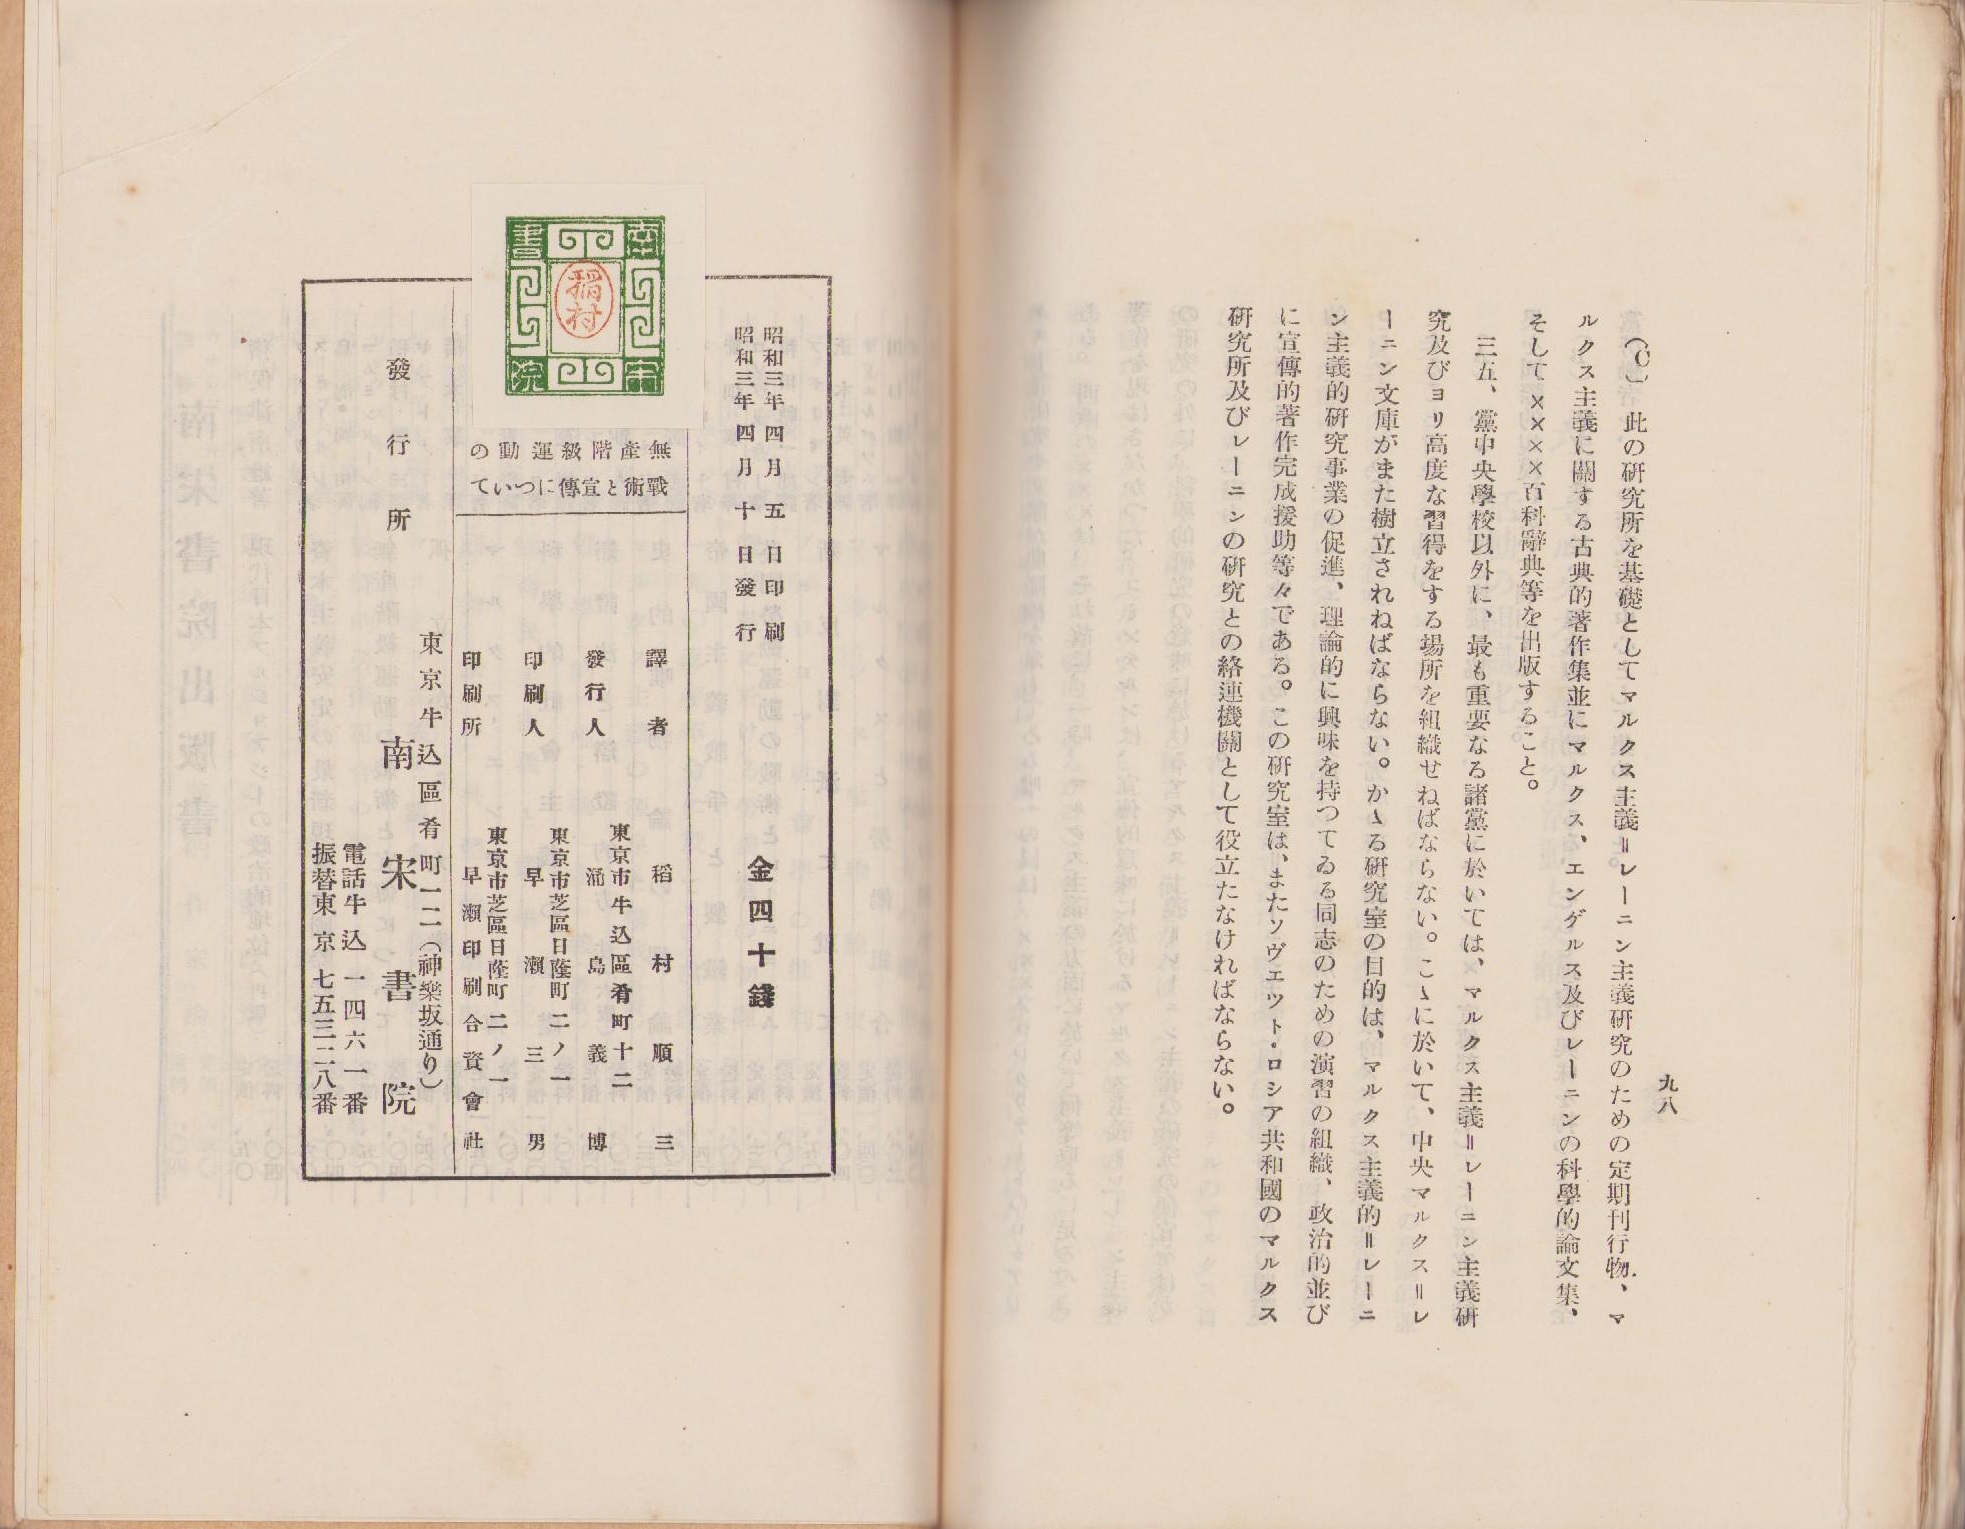 九八
(C) 此の研究所を基礎としてマルクス主義＝レーニン主義研究のための定期刊行物、マ
ルクス主義に關する古典的著作集並にマルクス、エンゲルス及びレーニンの科學的論文集、
そして××××百科辭典等を出版すること。
三五、黨中央學校以外に、最も重要なる諸黨に於いては、マルクス主義＝レーニン主義研
究及びヨリ高度な習得をする場所を組織せねばならない。こゝに於いて、中央マルクス＝レ
ーニン文庫がまた樹立されねばならない。かゝる研究室の目的は、マルクス主義的＝レーニ
ン主義的研究事業の促進、理論的に興味を持つてゐる同志のための演習の組織、政治的並び
に宣傳的著作完成援助等々である。この研究室は、またソヴエツト・ロシア共和國のマルクス
研究所及びレーニンの研究との絡連機關として役立たなければならない。
南宋書院
稲村
昭和三年四月五日印刷
昭和三年四月十日發行
金四十錢
無產階級運動の
戰術と宣傳について
譯者 稻村順三
東京市牛込區肴町十二
發行人 涌島義博
東京市芝區日蔭町二ノ一
印刷人 早瀬三男
東京市芝區日蔭町二ノ一
印刷所 早瀬印刷合資會社
東京牛込區肴町一二(神樂坂通り)
發行所 南宋書院
電話牛込一四六一番
振替東京七五三二八番